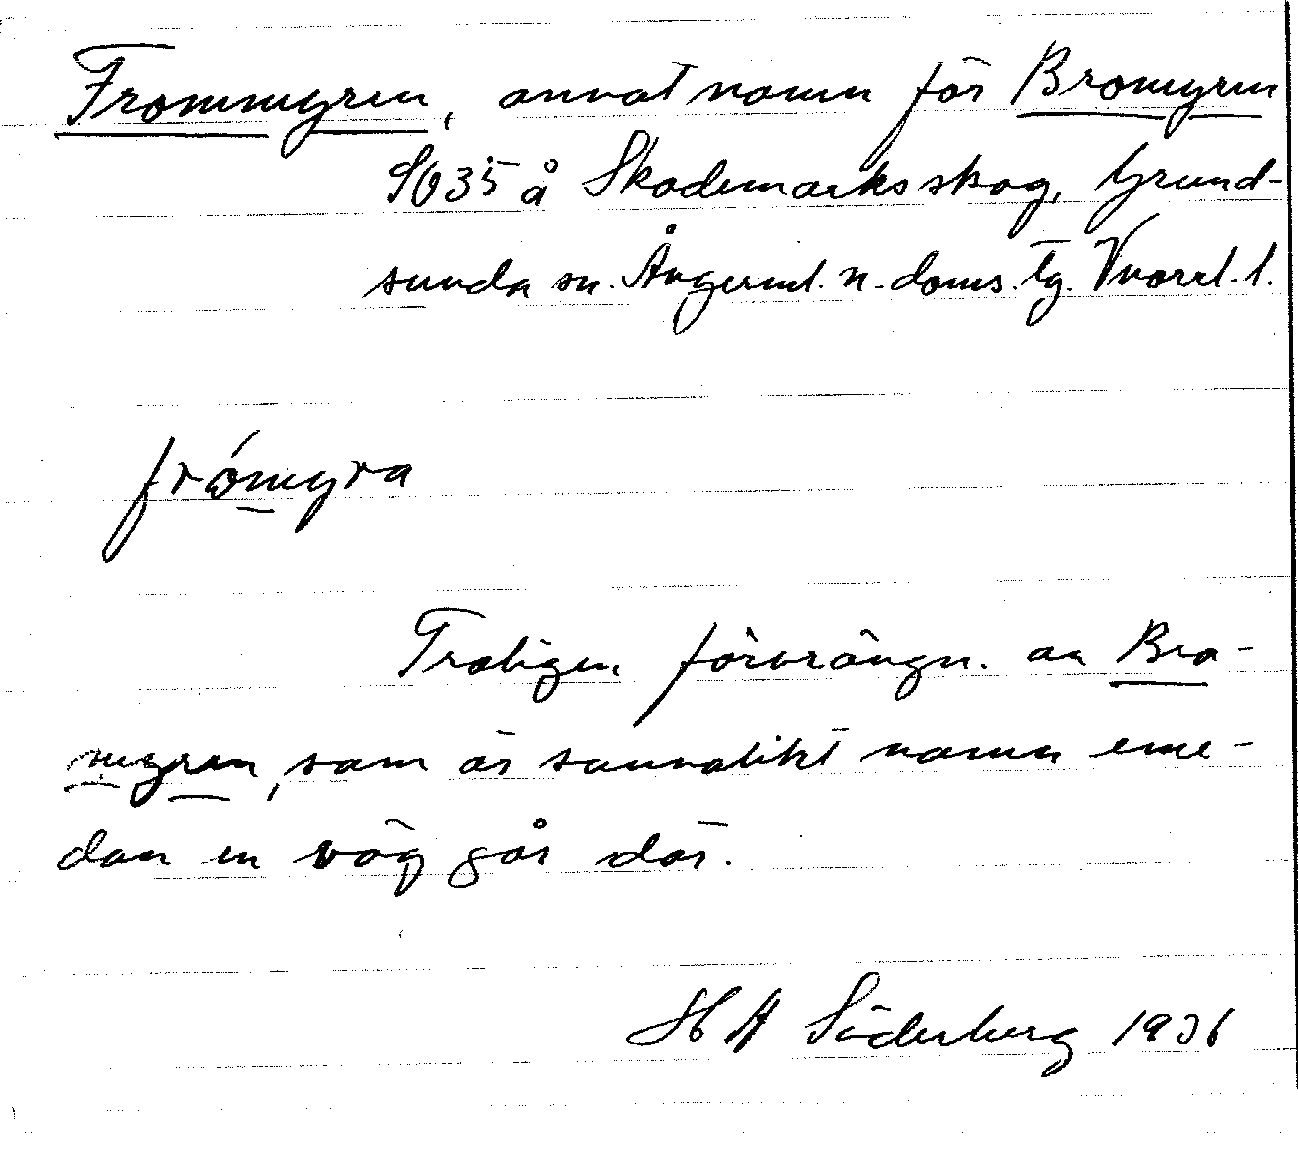 Frommyren, annat namn för Bromyren
SO35 å Skademarks skog, Grund-
sunda sn. Ångerml. n. doms. tg. Vnorrl. l.
frómyra
Troligen förvrängn. av Bro-
myren, som är sannolikt namn eme-
dan en väg går där.
H A Söderberg 1936